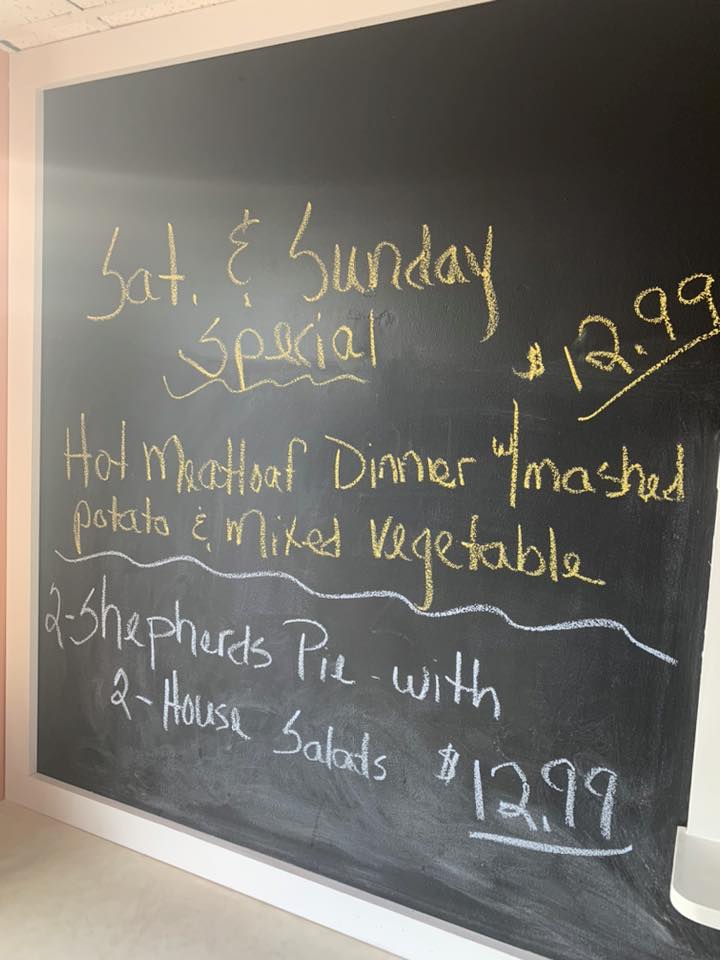 Sat. & Sunday
Special
$12.99
Hot Meatloaf Dinner w/mashed
potato & mixed vegetable
2-Shepherds Pie-with
2-House Salads
$12.99